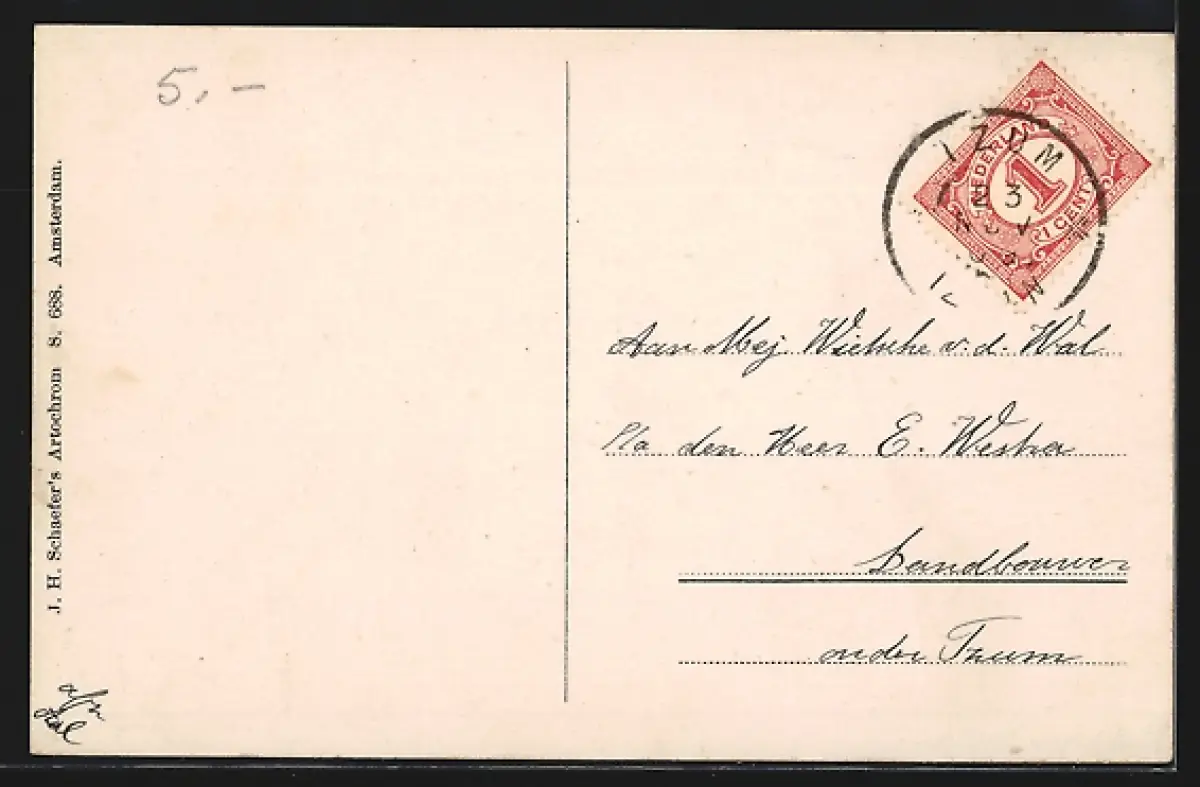 5,-
NEDERLAND
1
1 CENT
23
NOV
Aan Mej Wietske v. d. Wal
P/a den Heer E. Westra
Landbouwer
onder Tzum
J. H. Schaefer's Artochrom S. 688. Amsterdam.